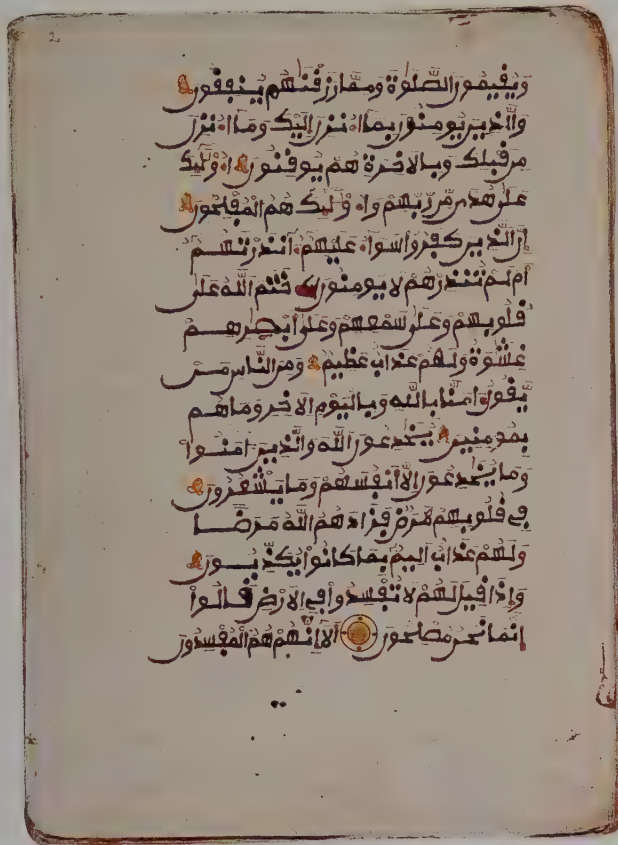 2
وَيُقِيمُونَ الصَّلَوٰةَ وَمِمَّا رَزَقْنَٰهُمْ يُنفِقُونَ
وَالَّذِينَ يُومِنُونَ بِمَا أُنزِلَ إِلَيْكَ وَمَا أُنزِلَ
مِن قَبْلِكَ وَبِالَاخِرَةِ هُمْ يُوقِنُونَ أُوْلَٰئِكَ
عَلَىٰ هُدًى مِّن رَّبِّهِمْ وَأُوْلَٰئِكَ هُمُ الْمُفْلِحُونَ
إِنَّ الَّذِينَ كَفَرُواْ سَوَاءٌ عَلَيْهِمْ ءَانذَرْتَهُمْ
أَمْ لَمْ تُنذِرْهُمْ لَا يُومِنُونَ خَتَمَ اللَّهُ عَلَىٰ
قُلُوبِهِمْ وَعَلَىٰ سَمْعِهِمْ وَعَلَىٰ أَبْصَٰرِهِمْ
غِشَٰوَةٌ وَلَهُمْ عَذَابٌ عَظِيمٌ وَمِنَ النَّاسِ مَن
يَّقُولُ ءَامَنَّا بِاللَّهِ وَبِالْيَوْمِ الَاخِرِ وَمَا هُم
بِمُومِنِينَ يُخَٰدِعُونَ اللَّهَ وَالَّذِينَ ءَامَنُواْ
وَمَا يُخَٰدِعُونَ إِلَّا أَنفُسَهُمْ وَمَا يَشْعُرُونَ
فِي قُلُوبِهِم مَّرَضٌ فَزَادَهُمُ اللَّهُ مَرَضًا
وَلَهُمْ عَذَابٌ أَلِيمٌ بِمَا كَانُواْ يُكَذِّبُونَ
وَإِذَا قِيلَ لَهُمْ لَا تُفْسِدُواْ فِي الَارْضِ قَالُواْ
إِنَّمَا نَحْنُ مُصْلِحُونَ أَلَا إِنَّهُمْ هُمُ الْمُفْسِدُونَ